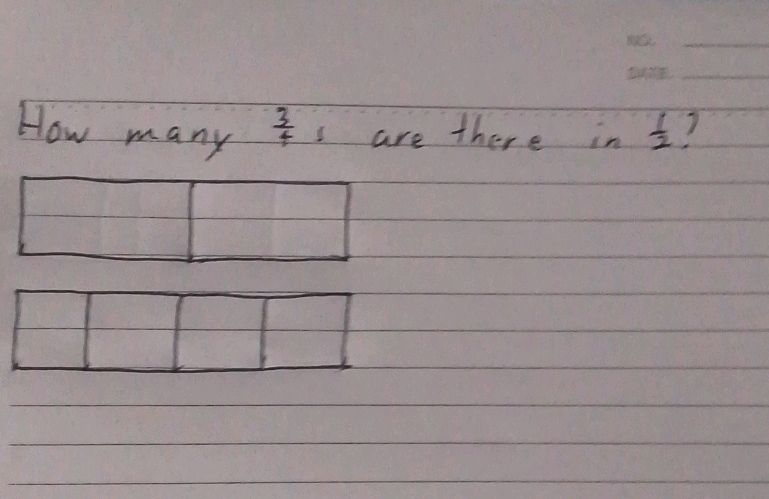 NO.
DATE
How many 3/4 s are there in 1/2?